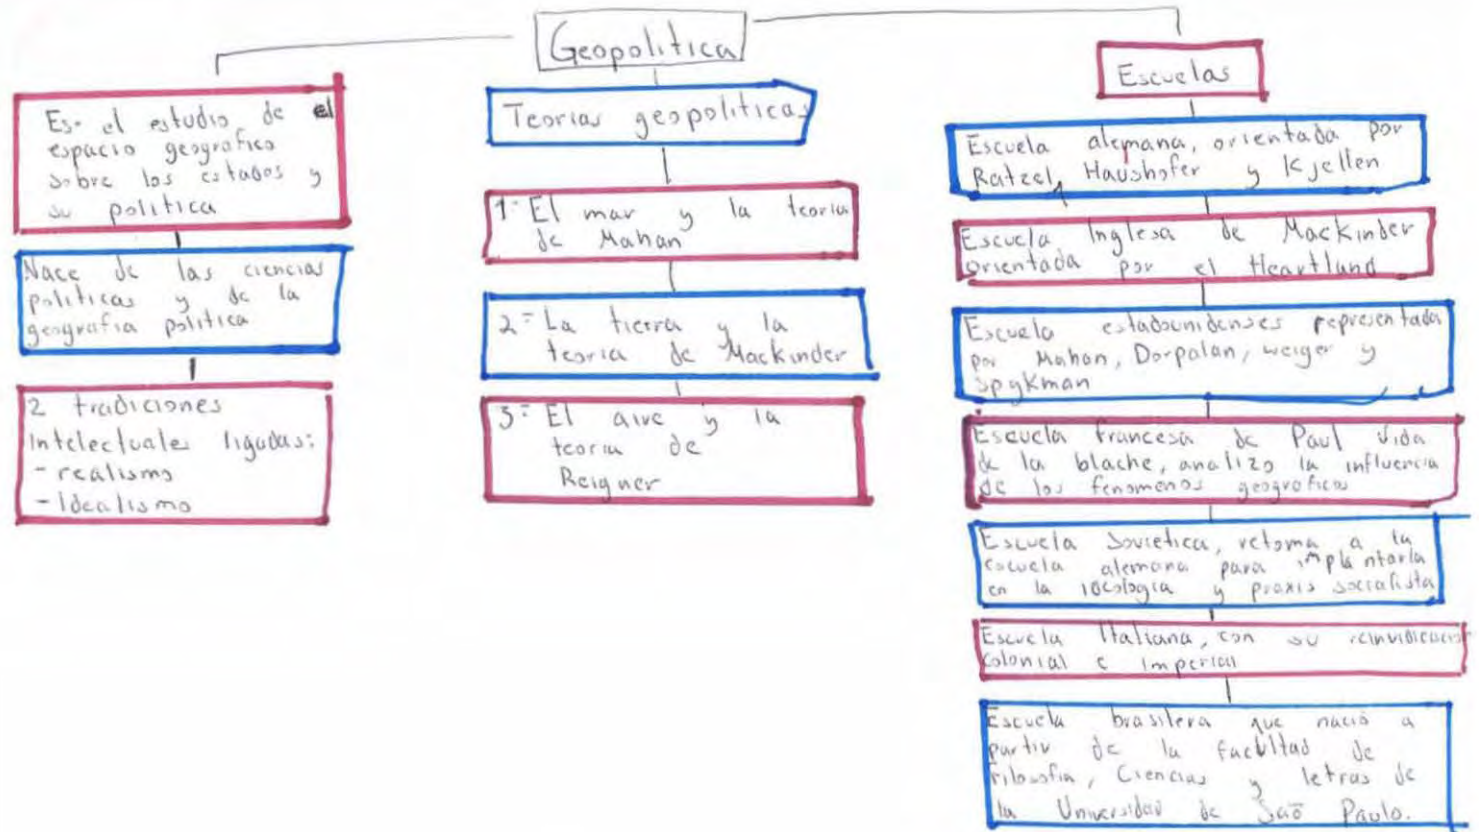 Geopolitica
Es- el estudio de el
espacio geografico
sobre los estados y
su politica
Nace de las ciencias
politicas y de la
geografia politica
2 tradiciones
intelectuales ligadas:
- realismo
- Idealismo
Teorias geopoliticas
1- El mar y la teoria
de Mahan
2- La tierra y la
teoria de Mackinder
3- El aire y la
teoria de
Reigner
Escuelas
Escuela alemana, orientada por
Ratzel, Haushofer y Kjellen
Escuela Inglesa de Mackinder
orientada por el Heartland
Escuela estadounidenses representada
por Mahan, Dorpalan, weiger y
Spykman
Escuela francesa de Paul Vida
de la blache, analizo la influencia
de los fenomenos geograficos
Escuela Sovietica, retoma a la
escuela alemana para implantarla
en la ideologia y praxis socialista
Escuela Italiana, con su
colonial e imperial
Escuela brasilera que nació a
partir de la facultad de
Filosofia, Ciencias y letras de
la Universidad de Saō Paulo.